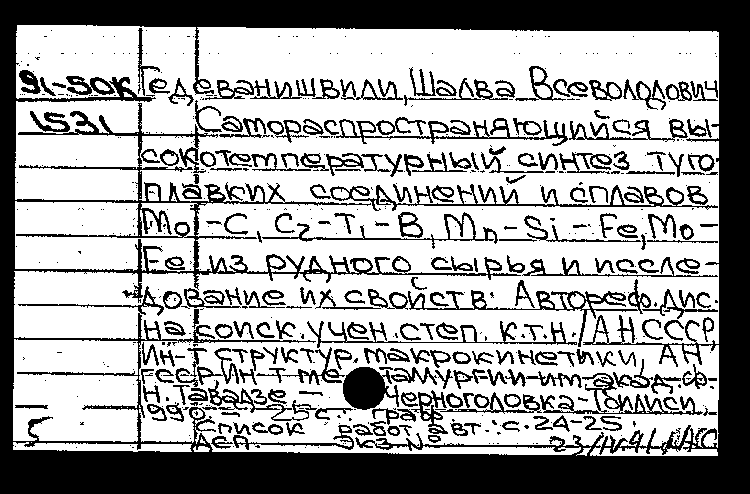 91-50К Гедеванишвили, Шалва Всеволодович
1531 Самораспространяющийся вы-
сокотемпературный синтез туго-
плавких соединений и сплавов
Mo-C, Cz-Ti-B, Mn-Si-Fe, Mo-
Fe из рудного сырья и иссле-
дование их свойств: Автореф. дис.
на соиск. учен. степ. к.т.н. / АН СССР,
Ин-т структур. макрокинетики, АН
ГССР, Ин-т ме таллургии им. акад. Ф.
Н. Тавадзе. - Черноголовка-Тбилиси,
1990. - 25с.: граф.
Список работ авт.: с. 24-25.
5 Деп. Экз. № 23/IV.91